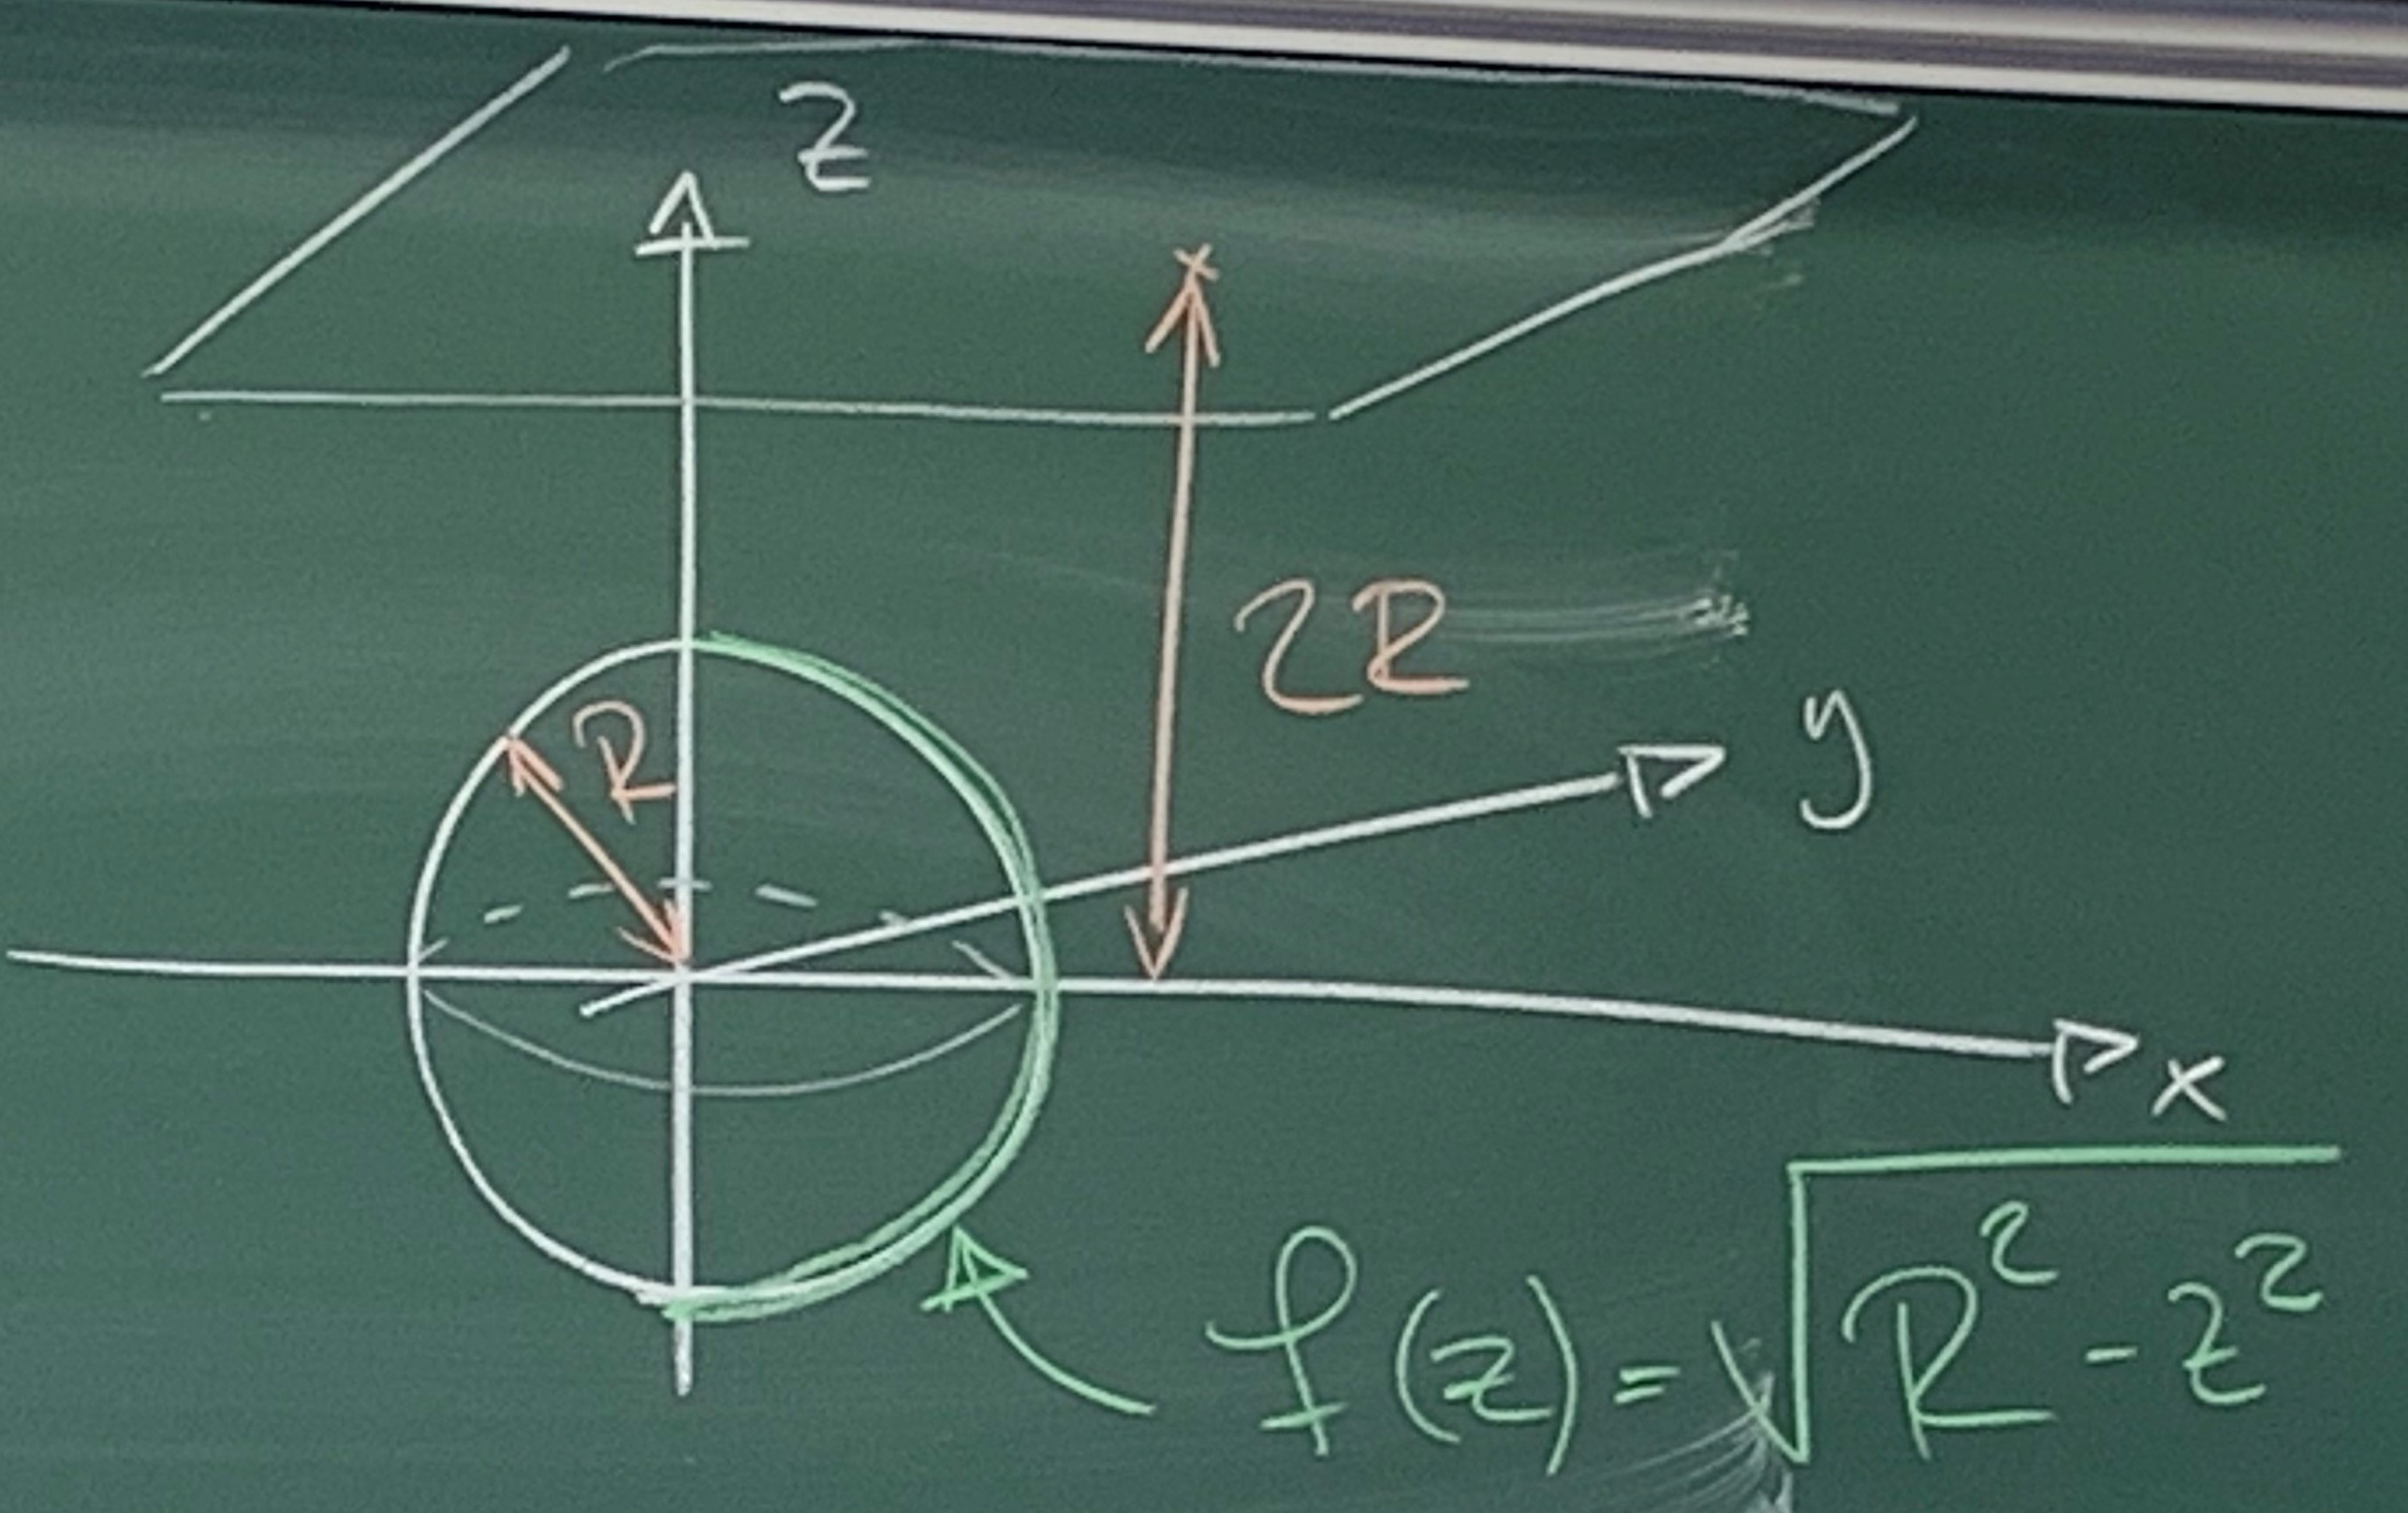 z
2R
R
y
x
f(z) = √(R² - z²)